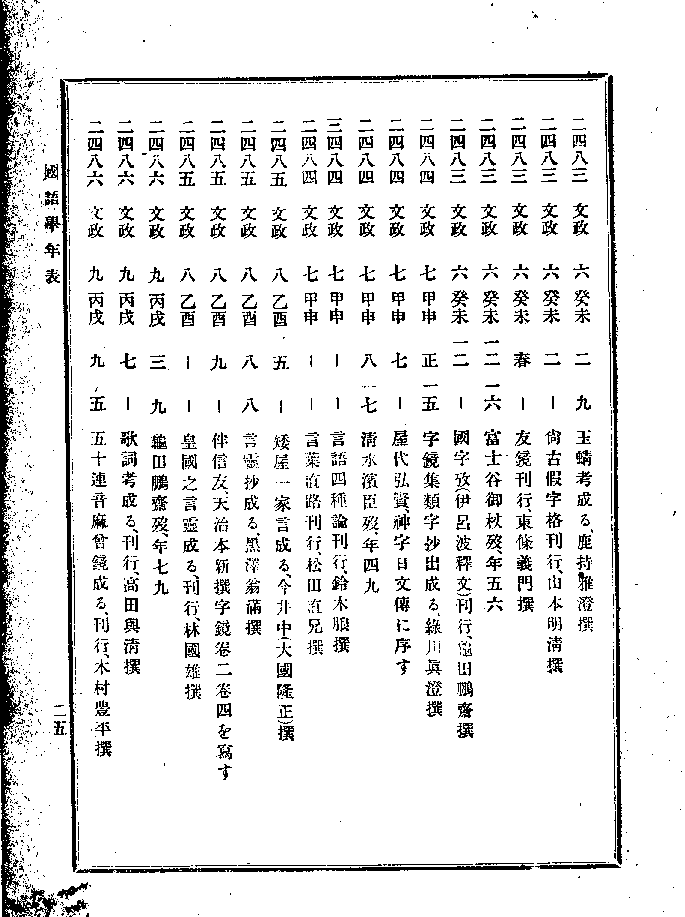 二四八三 文政 六 癸未 二 九 玉蜻考成る、鹿持雅澄撰
二四八三 文政 六 癸未 二 ー 尙古假字格刊行、山本明淸撰
二四八三 文政 六 癸未 春 ー 友鏡刊行、東條義門撰
二四八三 文政 六 癸未 一二 一六 富士谷御杖歿、年五六
二四八三 文政 六 癸未 一二 ー 國字攷伊呂波釋文(刊行)、龜田鵬齋撰
二四八四 文政 七 甲申 正 一五 字鏡集類字抄出成る、綠川眞澄撰
二四八四 文政 七 甲申 七 ー 屋代弘賢、神字日文傳に序す
二四八四 文政 七 甲申 八 一七 淸水濱臣歿年四九
三四八四 文政 七 甲申 ー ー 言語四種論刊行、鈴木朖撰
二四八四 文政 七 甲申 ー ー 言葉直路刊行、松田直兄撰
二四八五 文政 八 乙酉 五 ー 矮屋一家言成る、今井中(大國隆正)撰
二四八五 文政 八 乙酉 八 八 言靈抄成る、黑澤翁滿撰
二四八五 文政 八 乙酉 九 ー 伴信友、天治本新撰字鏡卷二卷四を寫す
二四八五 文政 八 乙酉 ー ー 皇國之言靈成る、刊行、林國雄撰
二四八六 文政 九 丙戌 三 九 龜田鵬齋歿、年七九
二四八六 文政 九 丙戌 七 ー 歌詞考成る、刊行、高田與淸撰
二四八六 文政 九 丙戌 九 五 五十連音麻曾鏡成る、刊行、木村豊平撰
國語學年表
二五